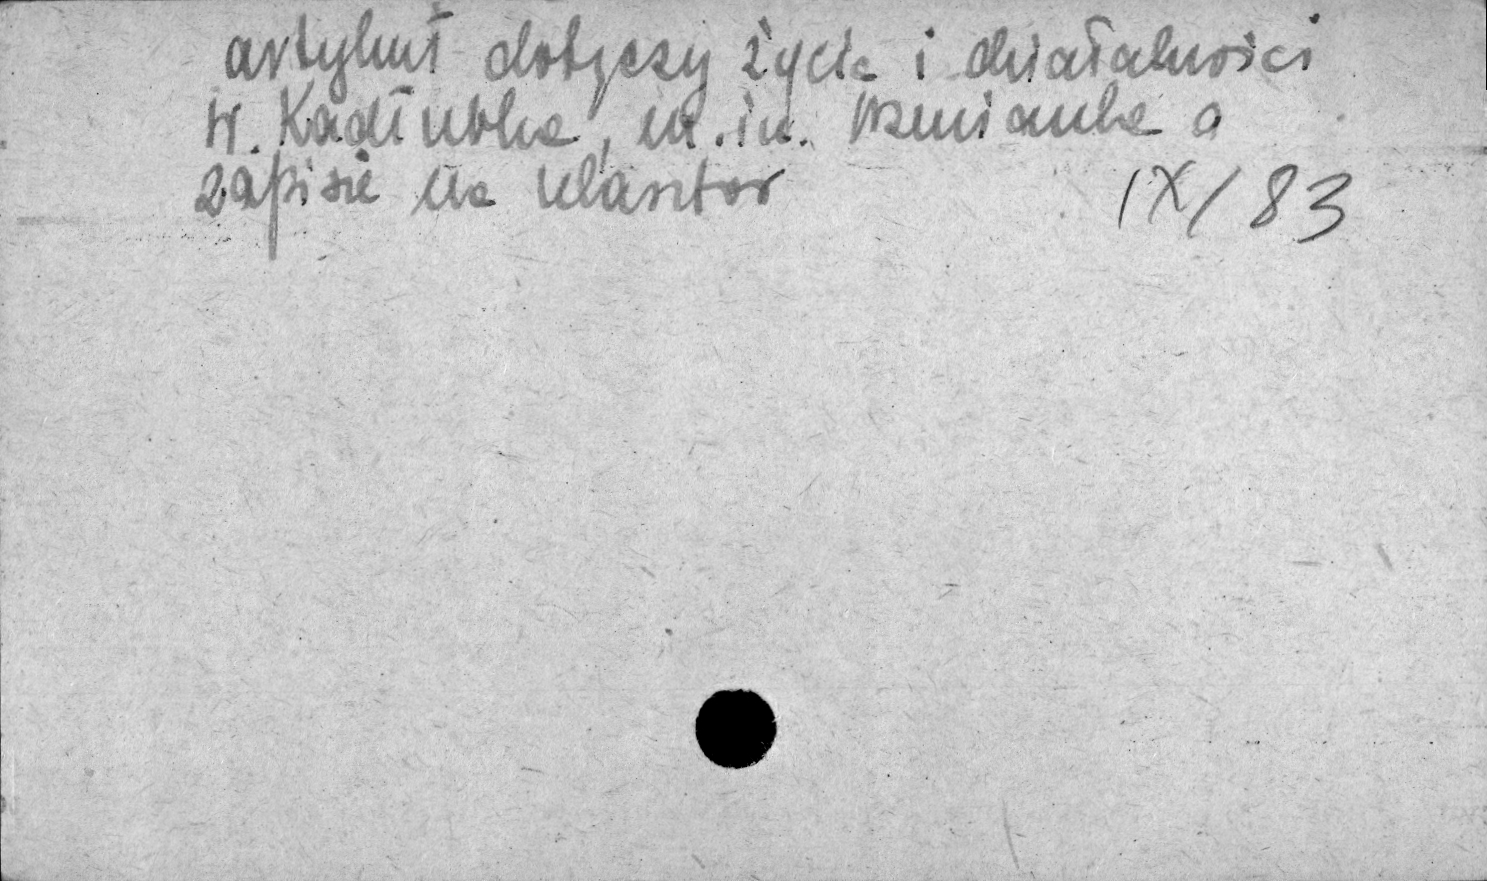 artykuł dotyczy życia i działalności
W. Kadłubka, m.in. wzmianka o
zapisie na klasztor
IX/83